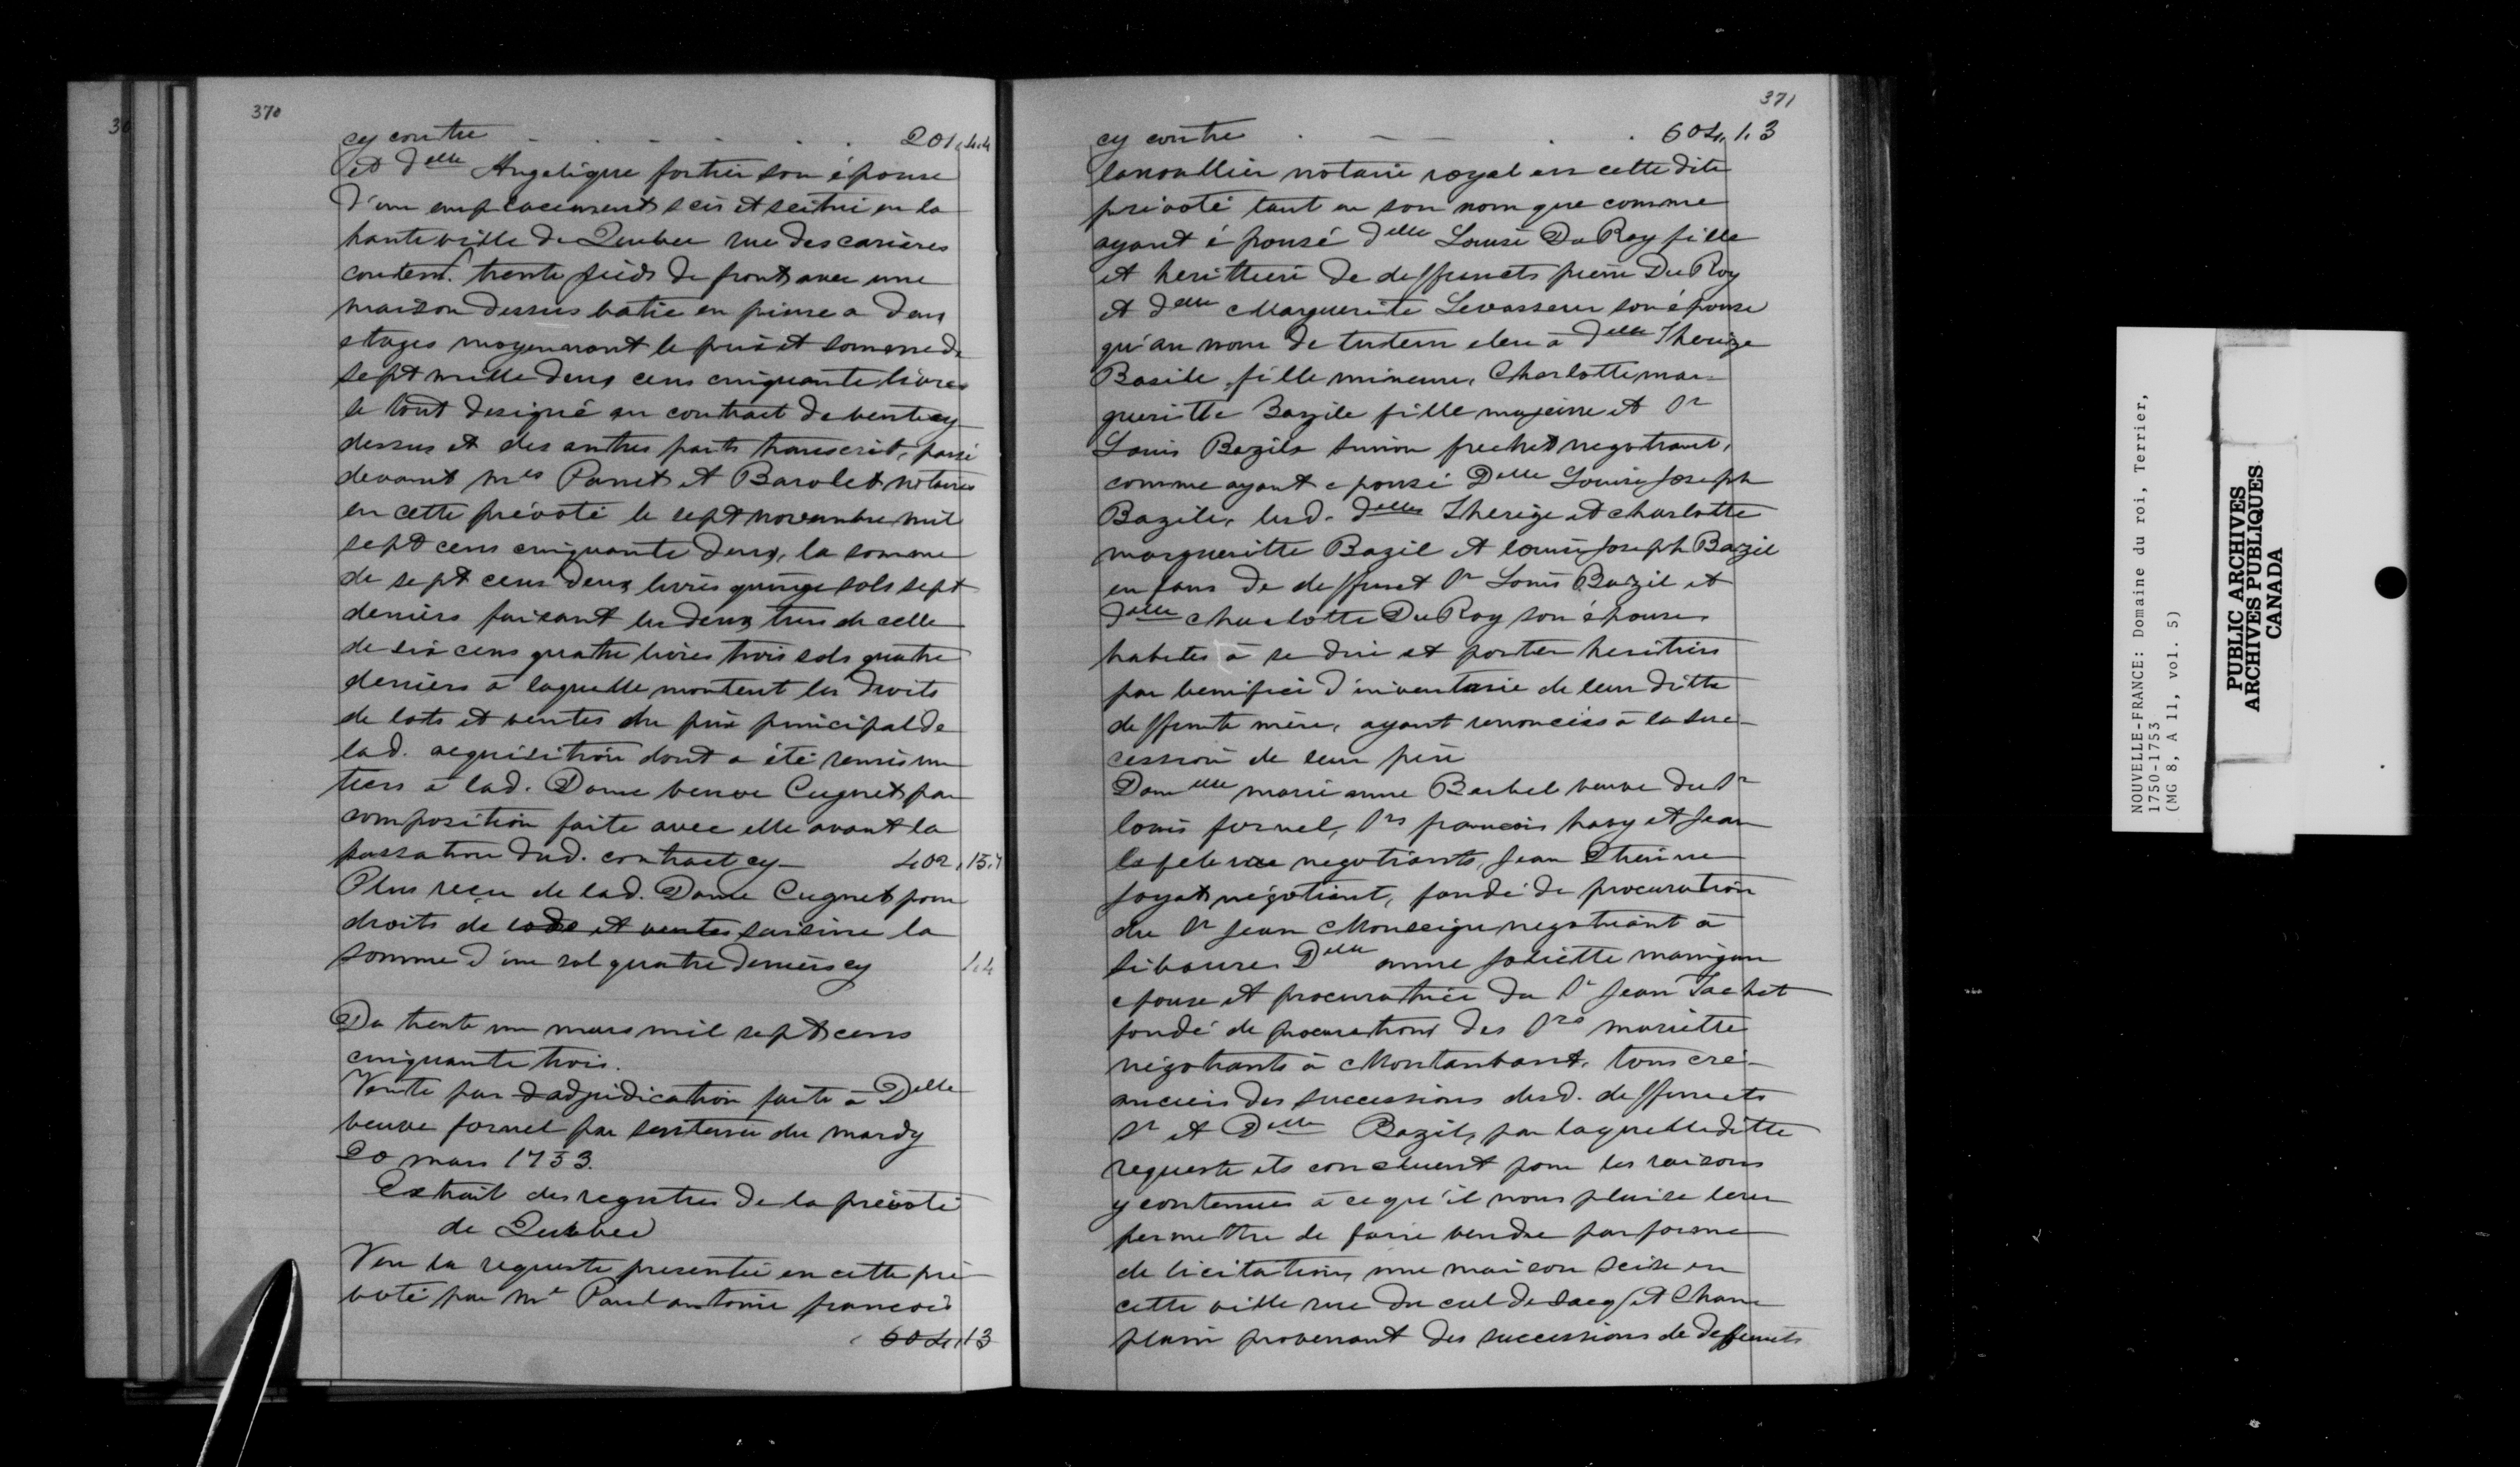 370
cy contre - - - - - 201,4.4
et d<sup>elle</sup> Angelique fortier son épouse
d'un emplacement scis et scitué en la
haute ville de Quebec rue des carières
conten<sup>t</sup>. trente pieds de front avec une
maison dessus batie en pierre a deux
etages moyennant le prix et somme de
sept mille deux cens cinquante livres
le tout designé au contract de vente cy
dessus et des autres parts transcrit, passé
devant m<sup>es</sup> Panet et Barolet notaires
en cette prévoté le sept novembre mil
sept cens cinquante deux, la somme
de sept cens deux livres quinze sols sept
deniers faisant les deux tiers de celle
de six cens quatre livres trois sols quatre
deniers à laquelle montent les droits
de lots et ventes du prix principal de
lad. acquisition dont a été remis un
tiers à lad. Dame veuve Cugnet par
composition faite avec elle avant la
passation dud. contract cy — 402,15.7
Plus reçu de lad. Dame Cugnet pour
droits de lods et ventes saisine la
somme d'un sol quatre deniers cy 1.4
Du trente un mars mil sept cens
cinquante trois.
Vente par adjudication faite à D<sup>elle</sup>
veuve fornel par sentence du mardy
20 mars 1753.
Extrait des registres de la prévoté
de Quebec
Veu la requeste presentée en cette pré-
voté par m<sup>e</sup> Paul antoine françois
604,13
371
cy contre - - - - 604,1.3
lanoullier notaire royal en cette dite
prévoté tant en son nom que comme
ayant épousé d<sup>elle</sup> Louise Du Roy fille
et herittiere de deffuncts pierre Du Roy
et d<sup>elle</sup> Marguerite Levasseur son épouse
qu'au nom de tuteur eleu à d<sup>elle</sup> Therize
Basile, fille mineure, Charlotte mar-
gueritte Bazile fille majeure et S<sup>r</sup>
Louis Bazile Simon frechet negotiant,
comme ayant epousé D<sup>elle</sup> Louise Joseph
Bazile, lesd. d<sup>elles</sup> Therize et charlotte
margueritte Bazil et louise Joseph Bazil
enfans de deffunct S<sup>r</sup> Louis Bazil et
d<sup>elle</sup> charlotte Du Roy son épouse
habiles à se dire et porter heritiers
par benifice d'inventaire de leur ditte
deffunte mère, ayant renoncés à la suc-
cession de leur père
Dam<sup>elle</sup> marie anne Barbel veuve du S<sup>r</sup>
louis fornel, S<sup>rs</sup> françois havy et Jean
lefebvre negotiants, Jean Etienne
Jayat négotiant, fondé de procuration
du S<sup>r</sup> Jean Monseigu negotiant à
Siboure, D<sup>elle</sup> anne Joliette maingan
epouse et procuratrice du S<sup>r</sup> Jean Tachet
fondé de procurations des S<sup>rs</sup> mariette
négotiants à Montauban, tous cré-
anciers des successions desd. deffuncts
S<sup>r</sup> et D<sup>elle</sup> Bazil, par laquelle ditte
requeste ils concluent pour les raisons
y contenues à ce qu'il nous plaise leur
permettre de faire vendre par forme
de licitation, une maison scise en
cette ville rue du cul de sacq et Cham
plain provenant des successions de deffuncts
NOUVELLE-FRANCE: Domaine du roi, Terrier,
1750-1753
(MG 8, A 11, vol. 5)
PUBLIC ARCHIVES
ARCHIVES PUBLIQUES
CANADA